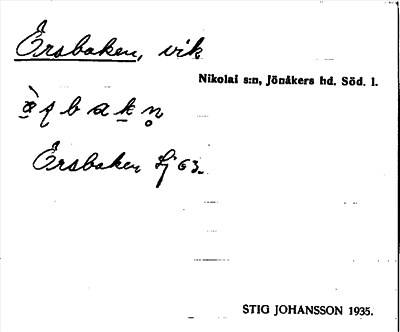 Ersbaken, vik
Nikolai s:n, Jönåkers hd. Söd. l.
Ersbaken Sj 63.
STIG JOHANSSON 1935.